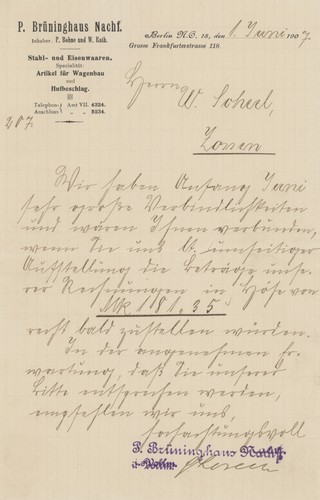 P. Brüninghaus Nachf.
Inhaber: P. Bohne und W. Rath.
Stahl- und Eisenwaaren.
Spezialität:
Artikel für Wagenbau
und
Hufbeschlag.
Telephon- Amt VII. 4324.
Anschluss „ 5234.
Berlin N.O. 18, den 1. Juni 1907.
Grosse Frankfurterstrasse 118.
207.
Herrn
W. Scheel,
Zossen
Wir haben Anfang Juni
sehr große Verbindlichkeiten
und wären Ihnen verbunden,
wenn Sie uns lt. umseitiger
Aufstellung die Beträge unse-
rer Rechnungen in Höhe von
Mk 181.35
recht bald zustellen würden.
In der angenehmen Er-
wartung, daß Sie unserer
Bitte entsprechen werden,
empfehlen wir uns,
hochachtungsvoll
P. Brüninghaus Nachf.